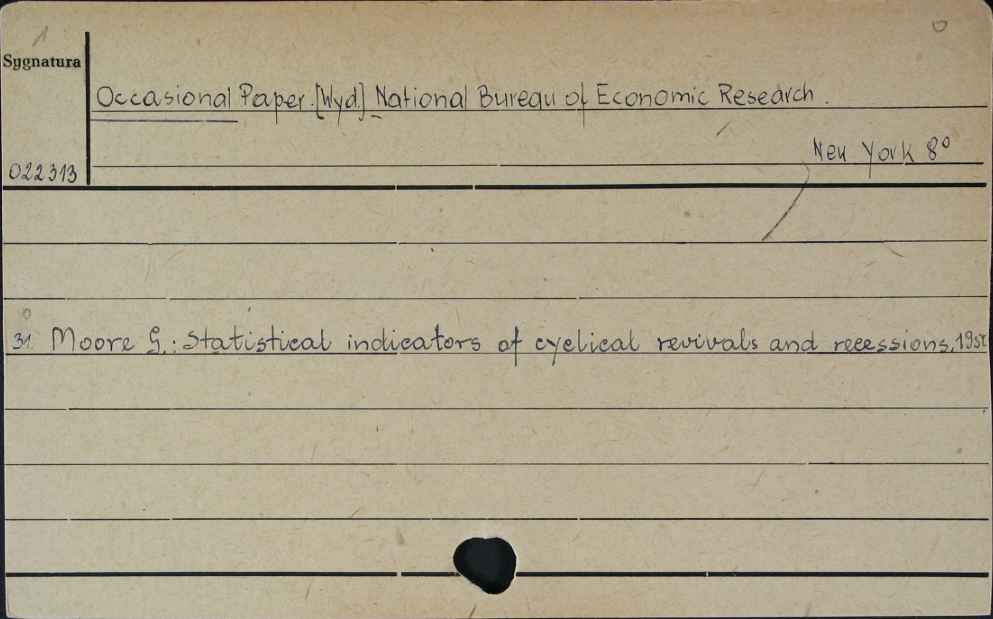 Sygnatura
Occasional Paper. [Wyd.] National Bureau of Economic Research.
New York 8°
022313
31. Moore G.: Statistical indicators of cyclical revivals and recessions.